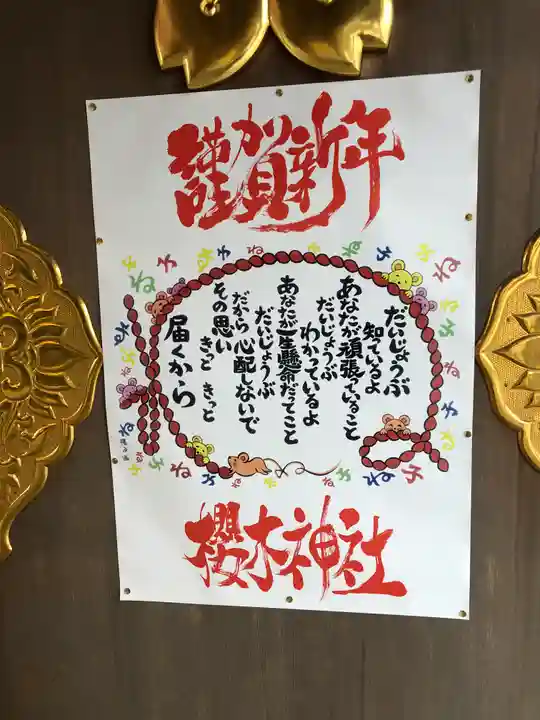 謹賀新年
だいじょうぶ
知ているよ
あなたが頑張っていること
だいじょうぶ
わかっているよ
あなたが一生懸命だってこと
だいじょうぶ
だから 心配しないで
その思い
きっと きっと
届くから
櫻木神社